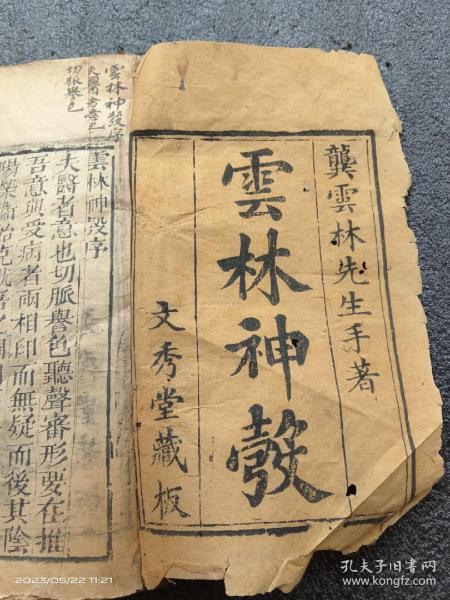 龔雲林先生手著
雲林神彀
文秀堂藏板
雲林神彀序
切脈譽色
雲林神彀序
夫醫者意也切脈譽色聽聲審形要在推
吾意與受病者兩相印而無疑而後其陰
2023/05/22 11:21
孔夫子旧书网
kongfz.com